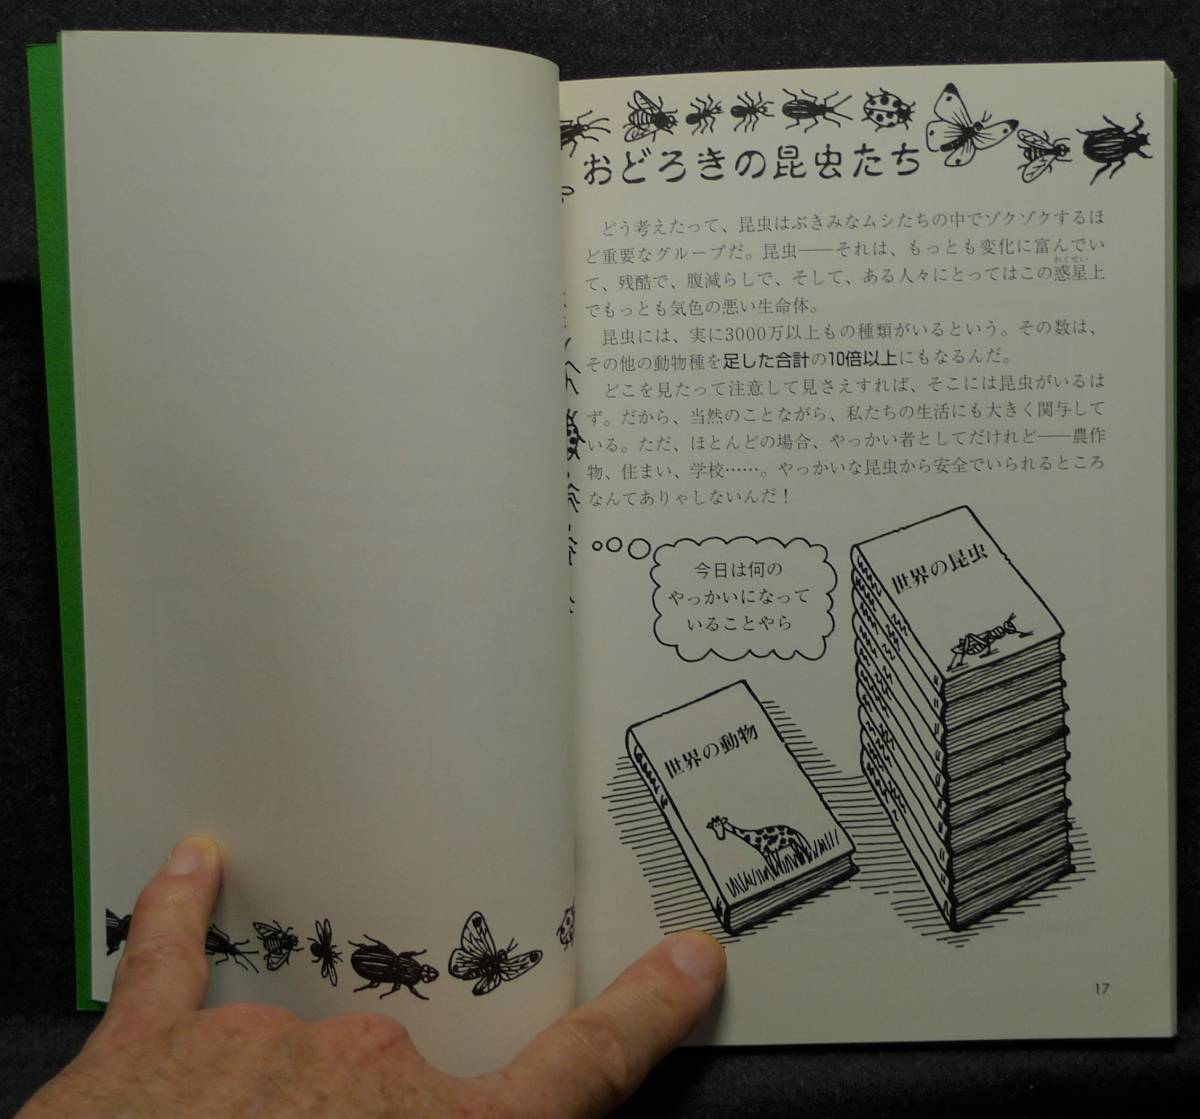 おどろきの昆虫たち
どう考えたって、昆虫はぶきみなムシたちの中でゾクゾクするほ
ど重要なグループだ。昆虫――それは、もっとも変化に富んでい
て、残酷で、腹減らしで、そして、ある人々にとってはこの惑星上
わくせい
でもっとも気色の悪い生命体。
昆虫には、実に3000万以上もの種類がいるという。その数は、
その他の動物種を足した合計の10倍以上にもなるんだ。
どこを見たって注意して見さえすれば、そこには昆虫がいるは
ず。だから、当然のことながら、私たちの生活にも大きく関与して
いる。ただ、ほとんどの場合、やっかい者としてだけれど――農作
物、住まい、学校……。やっかいな昆虫から安全でいられるところ
なんてありゃしないんだ！
今日は何の
やっかいになって
いることやら
世界の昆虫
世界の動物
17